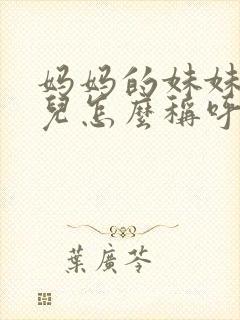 妈妈的妹妹
兒怎麼稱呼
葉廣芩